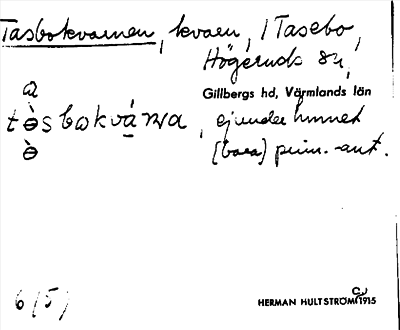 Tasbokvarnen, kvarn, i Tasebo,
Högeruds sn,
Gillbergs hd, Värmlands län
a
tøsbakvána, ej under hemmet
ø
[bara] prim.-ant.
6 (5)
HERMAN HULTSTRÖM 1915